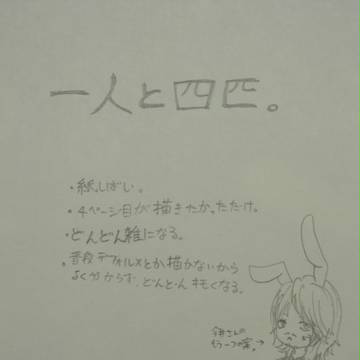 一人と四匹。
・紙しばい。
・4ページ目が描きたかっただけ。
・どんどん雑になる。
・普段デフォルメとか描かないから
よく分からず、どんどんキモくなる。
もう一つの案。→